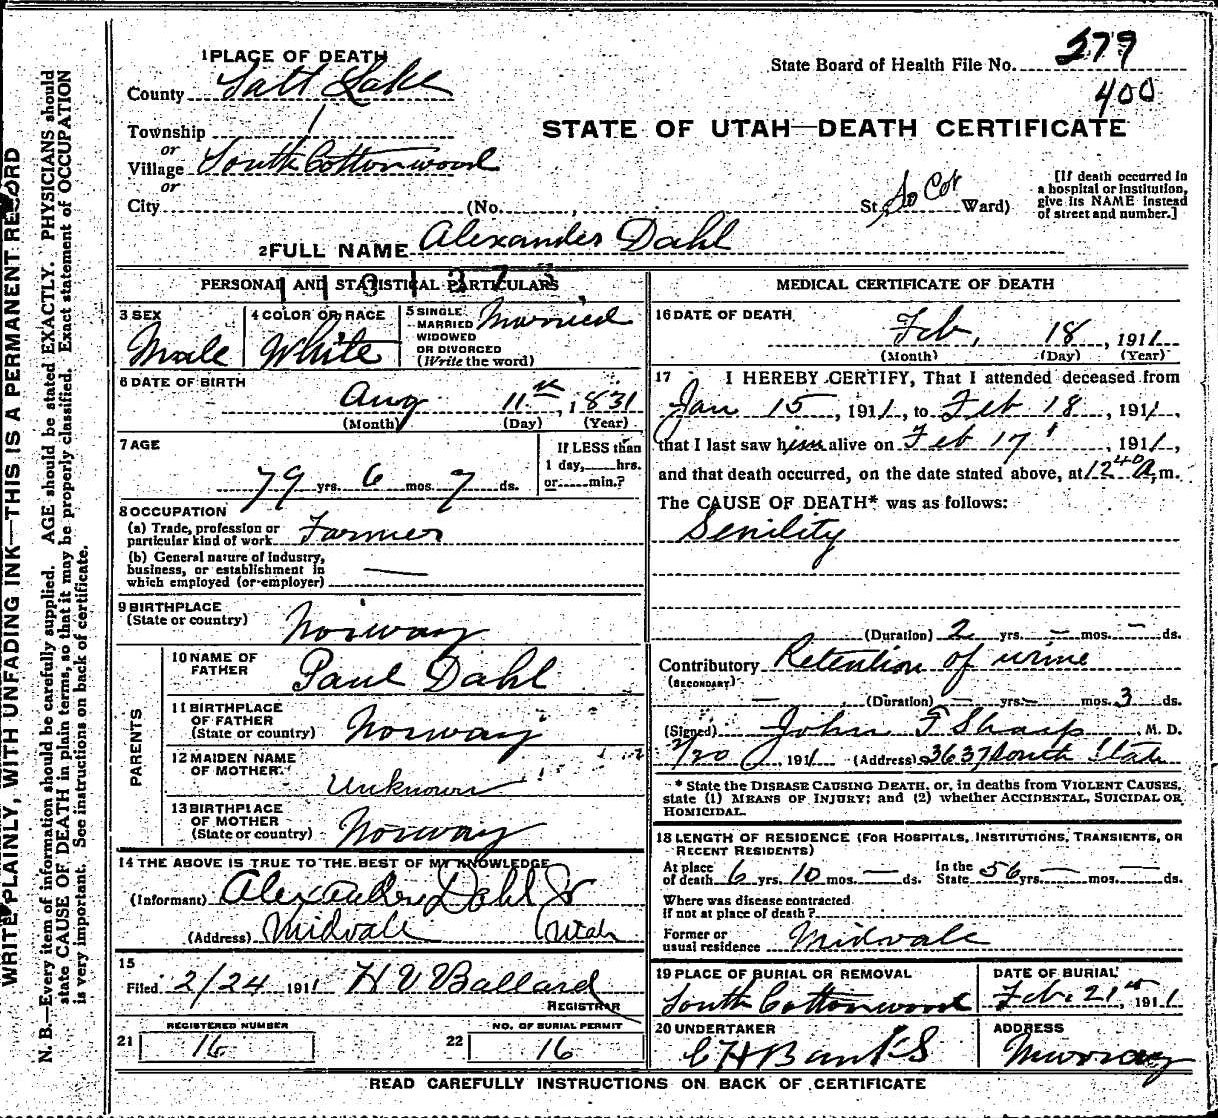 279
State Board of Health File No.
400
1 PLACE OF DEATH
County Salt Lake
STATE OF UTAH—DEATH CERTIFICATE
Township
or
Village South Cottonwood
or
City (No. , St. So Cot Ward)
[If death occurred in a hospital or institution, give its NAME instead of street and number.]
2 FULL NAME Alexander Dahl
PERSONAL AND STATISTICAL PARTICULARS
3 SEX Male
4 COLOR OR RACE White
5 SINGLE, MARRIED WIDOWED OR DIVORCED (Write the word) Married
6 DATE OF BIRTH
Aug 11th, 1831
(Month) (Day) (Year)
7 AGE
79 yrs. 6 mos. 7 ds.
If LESS than 1 day, hrs. or min.?
8 OCCUPATION
(a) Trade, profession or particular kind of work Farmer
(b) General nature of Industry, business, or establishment in which employed (or employer) —
9 BIRTHPLACE
(State or country) Norway
PARENTS
10 NAME OF FATHER Paul Dahl
11 BIRTHPLACE OF FATHER (State or country) Norway
12 MAIDEN NAME OF MOTHER Unknown
13 BIRTHPLACE OF MOTHER (State or country) Norway
14 THE ABOVE IS TRUE TO THE BEST OF MY KNOWLEDGE
(Informant) Alexander Dahl Jr
(Address) Midvale Utah
15
Filed 2/24 1911 H V Ballard
REGISTRAR
REGISTERED NUMBER
21 16
NO. OF BURIAL PERMIT
22 16
MEDICAL CERTIFICATE OF DEATH
16 DATE OF DEATH
Feb, 18, 1911
(Month) (Day) (Year)
17 I HEREBY CERTIFY, That I attended deceased from
Jan 15, 1911, to Feb 18, 1911,
that I last saw him alive on Feb 17, 1911,
and that death occurred, on the date stated above, at 12 40 A.m.
The CAUSE OF DEATH* was as follows:
Senility
(Duration) 2 yrs. — mos. — ds.
Contributory Retention of urine
(SECONDARY)
— (Duration) — yrs. — mos. 3 ds.
(Signed) John F Sharp, M. D.
2/20, 1911 (Address) 3637 South State
* State the DISEASE CAUSING DEATH, or, in deaths from VIOLENT CAUSES, state (1) MEANS OF INJURY; and (2) whether ACCIDENTAL, SUICIDAL OR HOMICIDAL.
18 LENGTH OF RESIDENCE (FOR HOSPITALS, INSTITUTIONS, TRANSIENTS, OR RECENT RESIDENTS)
At place of death 6 yrs. 10 mos. — ds. In the State 56 yrs. — mos. — ds.
Where was disease contracted
if not at place of death?
Former or usual residence Midvale
19 PLACE OF BURIAL OR REMOVAL
South Cottonwood
DATE OF BURIAL
Feb. 21st, 1911
20 UNDERTAKER
C H Banks
ADDRESS
Murray
READ CAREFULLY INSTRUCTIONS ON BACK OF CERTIFICATE
WRITE PLAINLY, WITH UNFADING INK—THIS IS A PERMANENT RECORD
N. B.—Every item of information should be carefully supplied. AGE should be stated EXACTLY. PHYSICIANS should
state CAUSE OF DEATH in plain terms, so that it may be properly classified. Exact statement of OCCUPATION
is very important. See instructions on back of certificate.